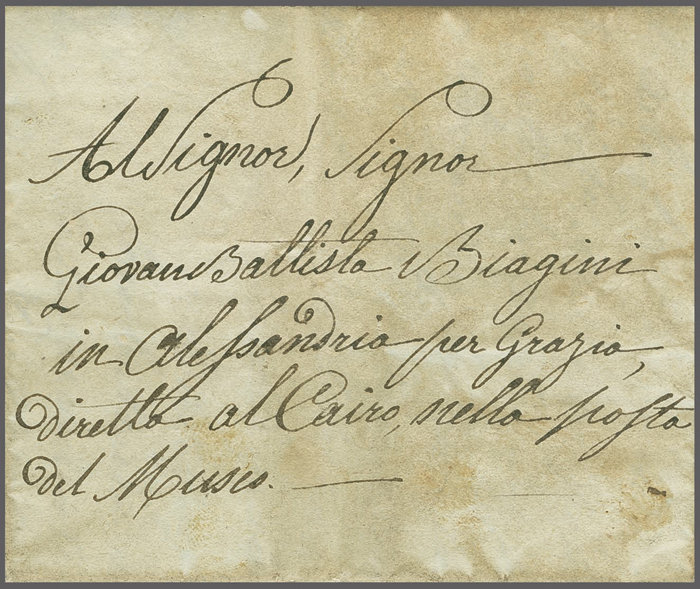 Al Signor, Signor
Giovan Battista Biagini
in Alessandria per Grazia,
diretta al Cairo, nella posta
del Museo.